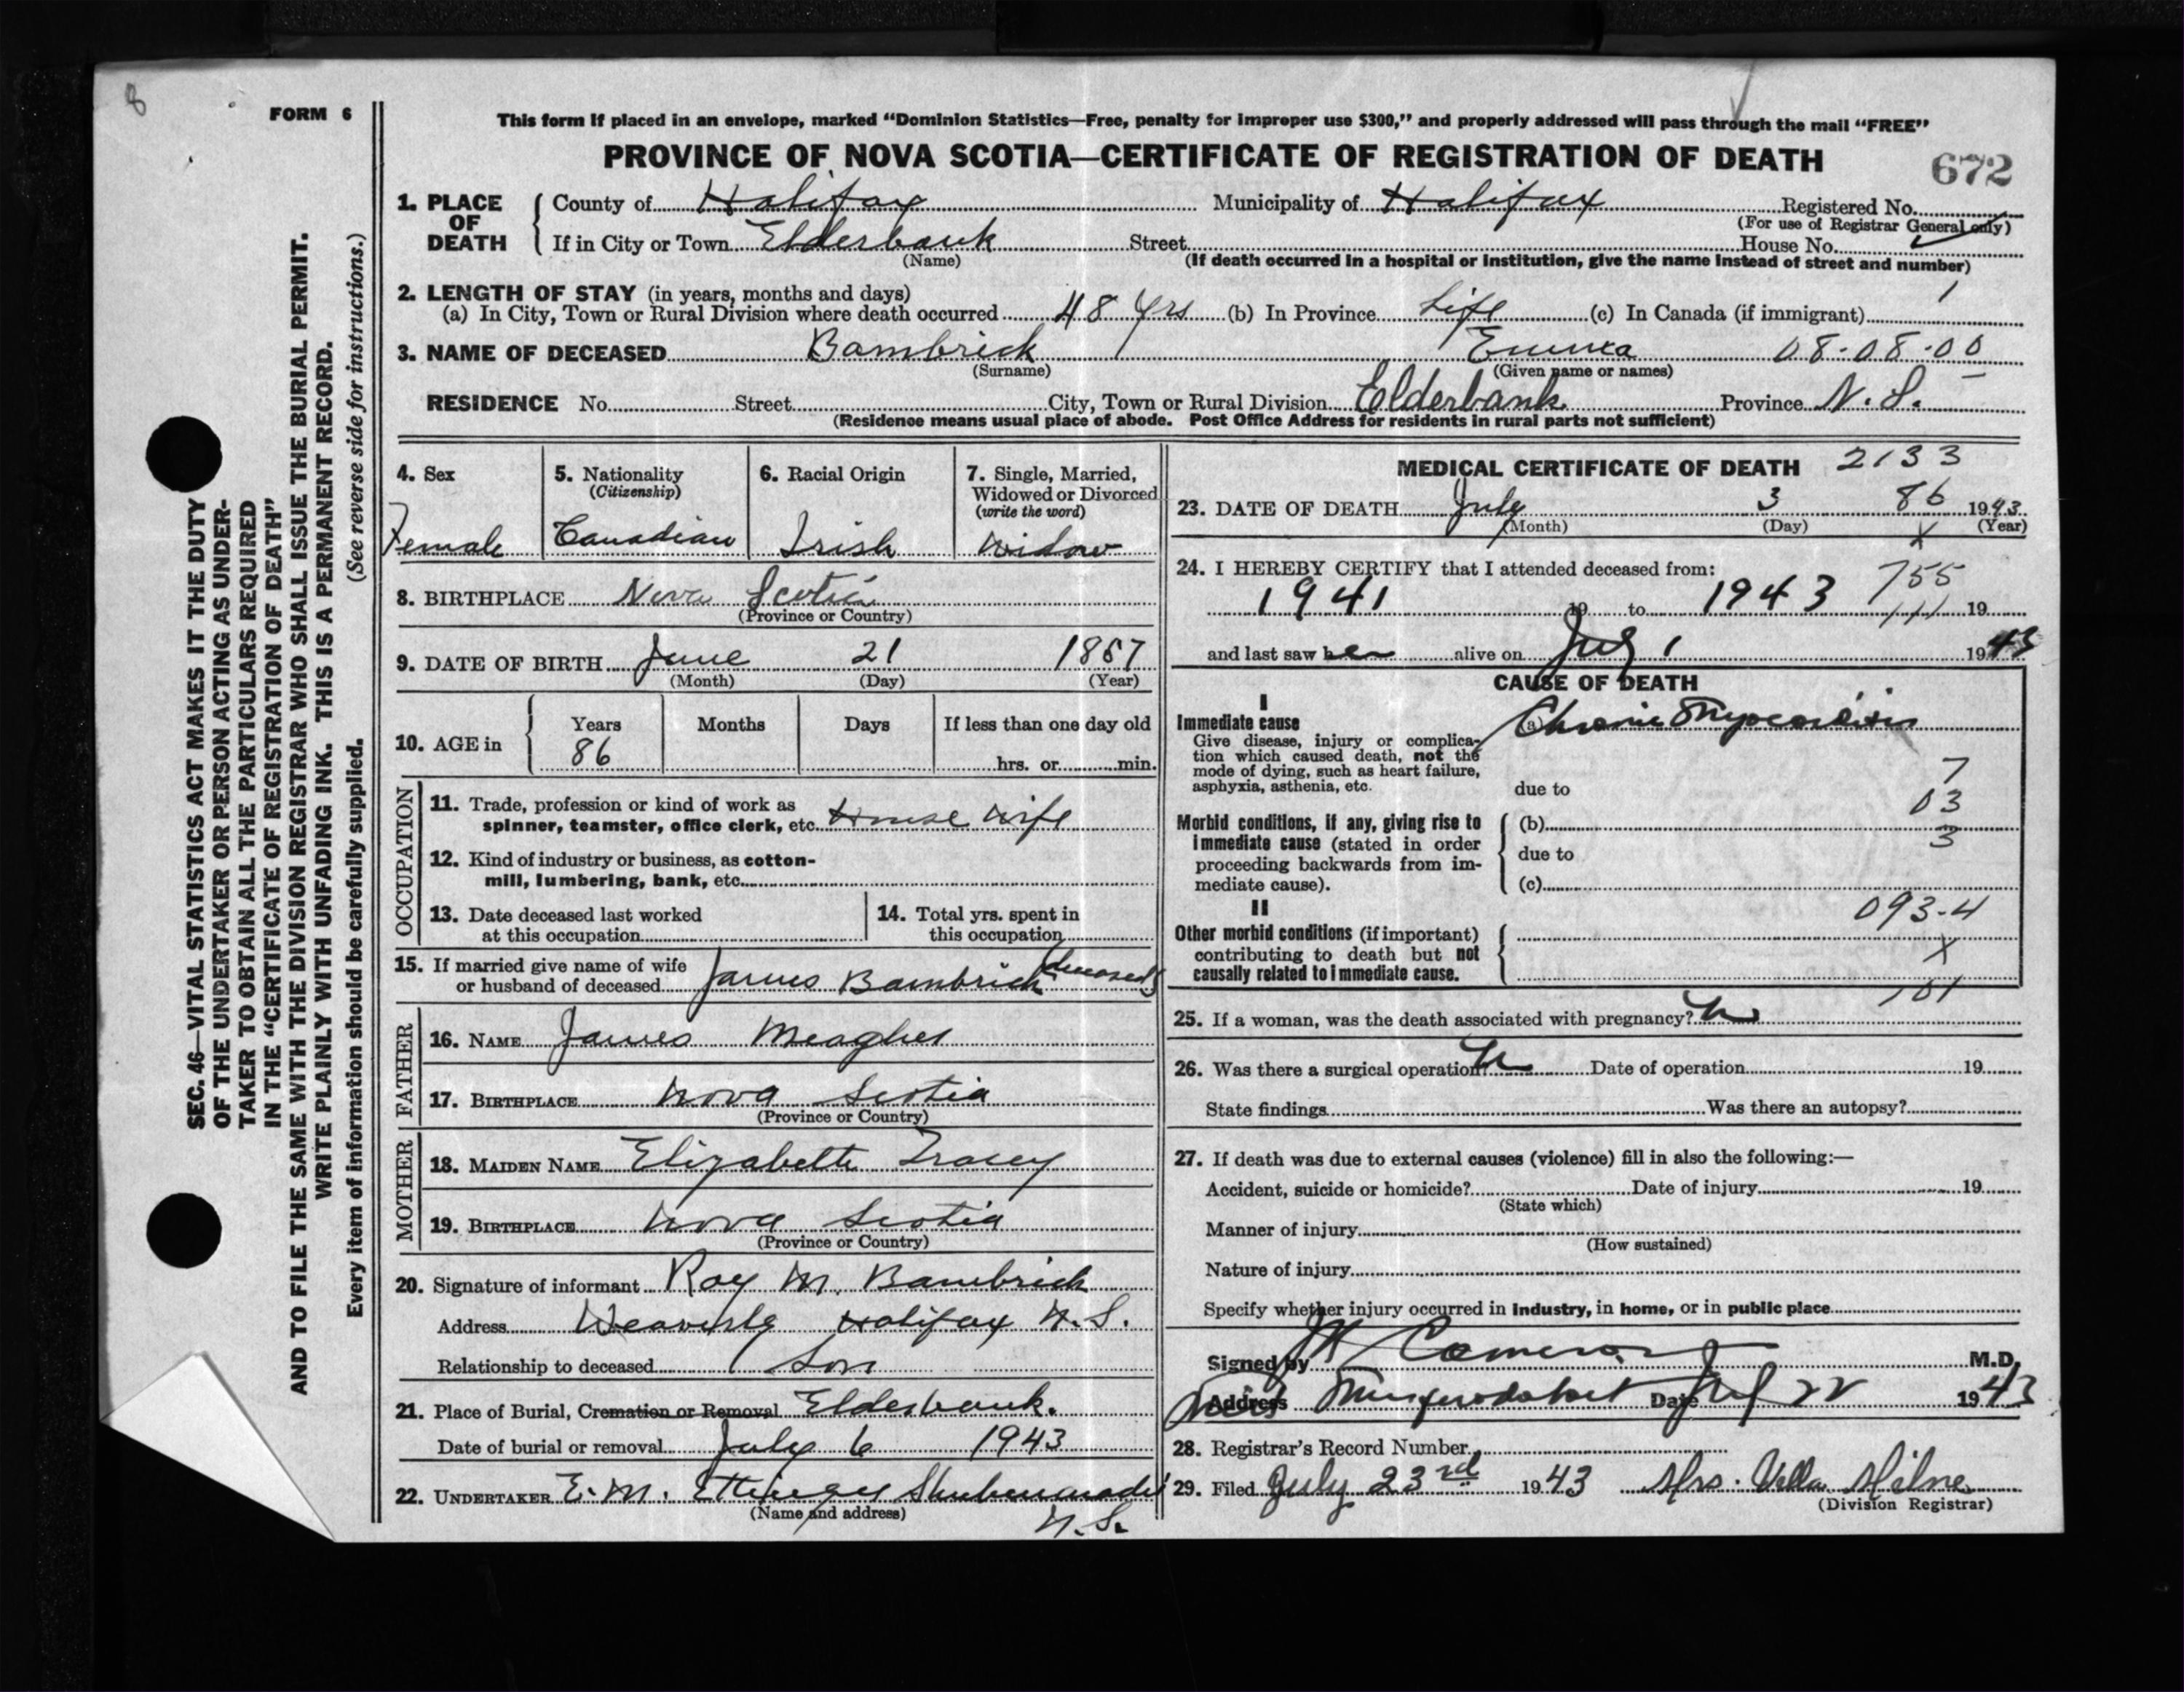 8
FORM 6
This form if placed in an envelope, marked “Dominion Statistics—Free, penalty for improper use $300,” and properly addressed will pass through the mail “FREE”
PROVINCE OF NOVA SCOTIA—CERTIFICATE OF REGISTRATION OF DEATH
672
1. PLACE OF DEATH
County of Halifax Municipality of Halifax Registered No.
(For use of Registrar General only)
If in City or Town Elderbank Street House No.
(Name) (If death occurred in a hospital or institution, give the name instead of street and number)
2. LENGTH OF STAY (in years, months and days)
(a) In City, Town or Rural Division where death occurred 48 yrs (b) In Province Life (c) In Canada (if immigrant)
3. NAME OF DECEASED Bambrick Emma 08-08-00
(Surname) (Given name or names)
RESIDENCE No. Street City, Town or Rural Division Elderbank Province N. S.
(Residence means usual place of abode. Post Office Address for residents in rural parts not sufficient)
4. Sex Female
5. Nationality (Citizenship) Canadian
6. Racial Origin Irish
7. Single, Married, Widowed or Divorced (write the word) Widow
8. BIRTHPLACE Nova Scotia
(Province or Country)
9. DATE OF BIRTH June 21 1857
(Month) (Day) (Year)
10. AGE in Years 86 Months Days If less than one day old
hrs. or min.
OCCUPATION
11. Trade, profession or kind of work as
spinner, teamster, office clerk, etc. House wife
12. Kind of industry or business, as cotton-
mill, lumbering, bank, etc.
13. Date deceased last worked
at this occupation
14. Total yrs. spent in
this occupation
15. If married give name of wife
or husband of deceased James Bambrick (deceased)
FATHER
16. NAME James Meagher
17. BIRTHPLACE Nova Scotia
(Province or Country)
MOTHER
18. MAIDEN NAME Elizabeth Tracey
19. BIRTHPLACE Nova Scotia
(Province or Country)
20. Signature of informant Roy M. Bambrick
Address Waverly Halifax N.S.
Relationship to deceased Son
21. Place of Burial, Cremation or Removal Elderbank.
Date of burial or removal July 6 1943
22. UNDERTAKER E. M. Ettinger Shubenacadie
(Name and address) N. S.
MEDICAL CERTIFICATE OF DEATH 2133
23. DATE OF DEATH July 3 86 1943
(Month) (Day) X (Year)
24. I HEREBY CERTIFY that I attended deceased from: 755
1941 19 to 1943 111 19
and last saw her alive on July 1 1943
CAUSE OF DEATH
I
Immediate cause (a) Chronic Myocarditis
Give disease, injury or complica-
tion which caused death, not the
mode of dying, such as heart failure,
asphyxia, asthenia, etc. due to
7
03
3
Morbid conditions, if any, giving rise to (b)
immediate cause (stated in order due to
proceeding backwards from im-
mediate cause). (c)
II
093-4
Other morbid conditions (if important)
contributing to death but not X
causally related to immediate cause.
101
25. If a woman, was the death associated with pregnancy? No
26. Was there a surgical operation? No Date of operation 19
State findings Was there an autopsy?
27. If death was due to external causes (violence) fill in also the following:—
Accident, suicide or homicide? Date of injury 19
(State which)
Manner of injury
(How sustained)
Nature of injury
Specify whether injury occurred in industry, in home, or in public place
Signed by Cameron M.D.
Address Musquodoboit Date July 22 1943
28. Registrar's Record Number
29. Filed July 23rd 1943 Mrs. Vella Milne
(Division Registrar)
SEC. 46—VITAL STATISTICS ACT MAKES IT THE DUTY
OF THE UNDERTAKER OR PERSON ACTING AS UNDER-
TAKER TO OBTAIN ALL THE PARTICULARS REQUIRED
IN THE “CERTIFICATE OF REGISTRATION OF DEATH”
AND TO FILE THE SAME WITH THE DIVISION REGISTRAR WHO SHALL ISSUE THE BURIAL PERMIT.
WRITE PLAINLY WITH UNFADING INK. THIS IS A PERMANENT RECORD.
Every item of information should be carefully supplied. (See reverse side for instructions.)